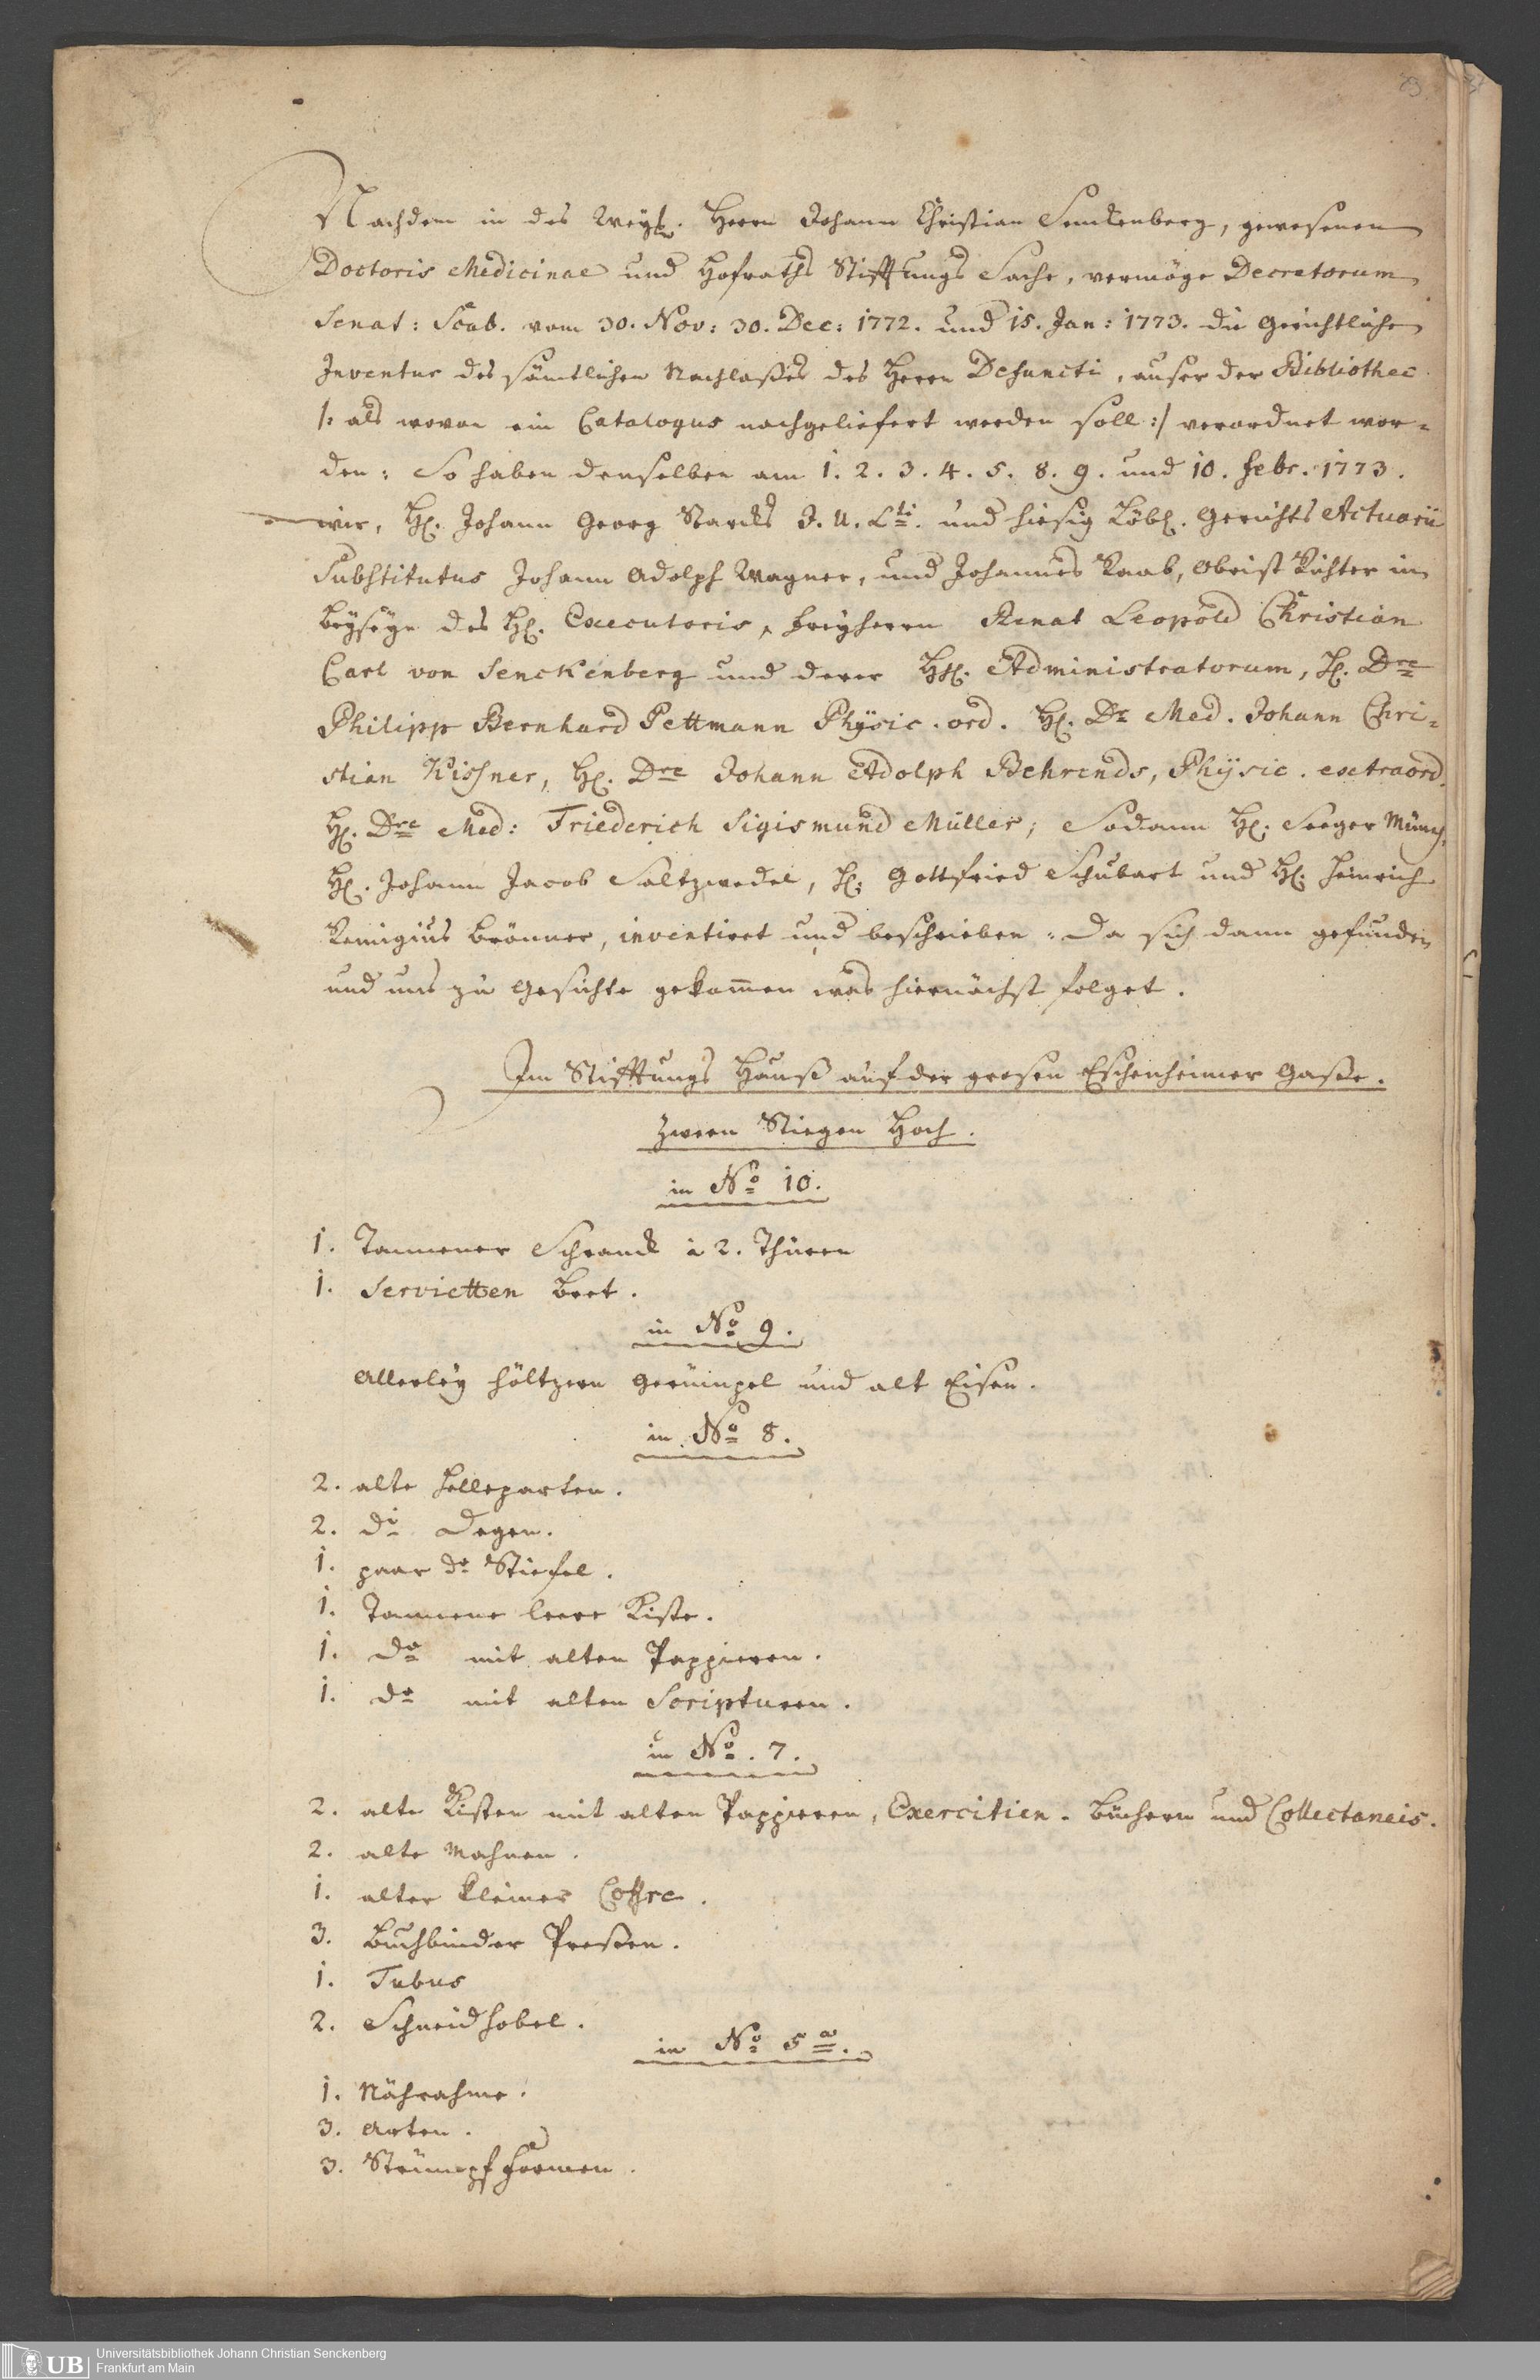 83.
Nachdem in des Weyl. Herrn Johann Christian Senckenberg, gewesenen
Doctoris Medicinae und Hofraths Stifftungs Sache, vermöge Decretorum
Senat: Scab. vom 30. Nov: 30. Dec: 1772. und 15. Jan: 1773. die Gerichtliche
Inventur des sämtlichen Nachlaßes des Herrn Defuncti, auser der Bibliothec
/: als wovon ein Catalogus nachgeliefert werden soll :/ verordnet wor-
den: So haben denselben am 1. 2. 3. 4. 5. 8. 9. und 10. Febr. 1773.
wir, H. Johann Georg Starcks J. U. Lti. und hiesig Löbl. Gerichts Actuarii
Substitutus Johann Adolph Wagner, und Johannes Raab, Obrist Richter in
Beyseyn des H. Executoris, Freyherrn Renat Leopold Christian
Carl von Senckenberg und derer HH. Administratorum, H. Dre
Philipp Bernhard Pettmann Physic. ord. H. Dr Med. Johann Chri-
stian Kissner, H. Dre Johann Adolph Behrends, Physic. extraord.
H. Dre Med: Friederich Sigismund Müller; Sodann H. Seeger Münch,
H. Johann Jacob Saltzwedel, H. Gottfried Schubart und H. Heinrich
Remigius Brönner, inventiret und beschrieben. Da sich dann gefunden
und uns zu Gesichte gekom̄en was hiernächst folget.
Im Stifftungs Hauß auf der grosen Eschenheimer Gasse.
Zween Stiegen Hoch.
in No 10.
1. Tannener Schranck à 2. Thüren
1. Servietten Bret.
in No 9.
Allerley höltzern Gerümpel und alt Eisen.
in No 8.
2. alte Helleparten.
2. do Degen.
1. paar do Stiefel.
1. Tannene leere Kiste.
1. do mit alten Pappieren.
1. do mit alten Scripturen.
in No. 7.
2. alte Kisten mit alten Pappieren, Exercitien-Büchern und Collectaneis.
2. alte Mahnen.
1. alter kleiner Coffre.
3. Buchbinder Pressen.
1. Tubus
2. Schneidhobel.
in No 5 a.
1. Nährahme.
3. Arten.
3. Strümpf Formen.
UB
Universitätsbibliothek Johann Christian Senckenberg
Frankfurt am Main